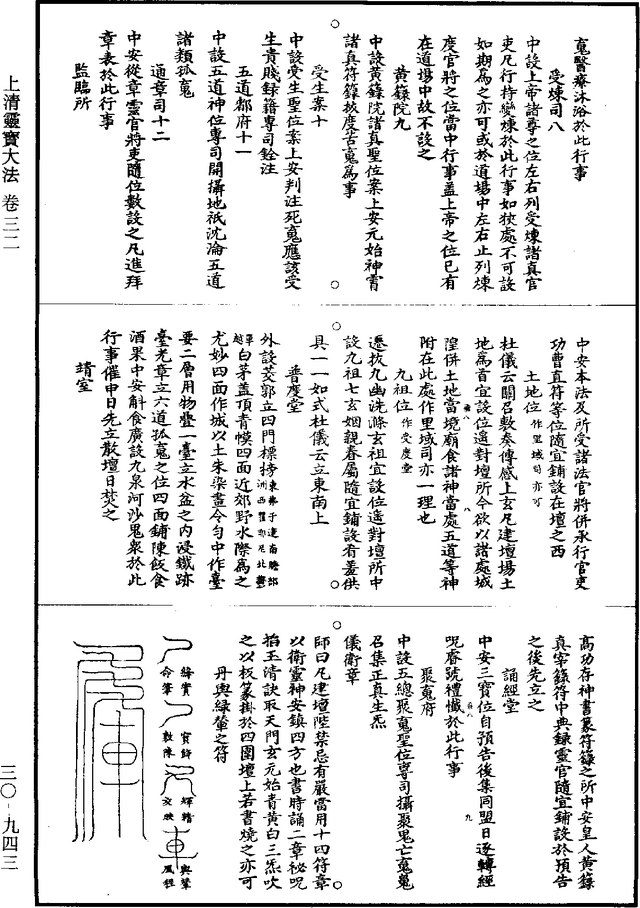 上清靈寶大法 卷三二
三〇-九四三
竟醫療沐浴於此行事
受煉司八
中設上帝諸尊之位左右列受煉諸真官
吏凡行持變煉於此行事如狹處不可設
如期為之亦可或於道場中左右止列煉
度官將之位當中行事蓋上帝之位已有
在道場中故不設之
黃籙院九
中設黃籙院諸真聖位案上安元始神霄
諸真符籙拔度苦䰟為事
受生案十
中設受生聖位案上安判注死䰟應該受
生貴賤録籍專司銓注
五道都府十一
中設五道神位專司開攝地祇沈淪五道
諸類孤䰟
通章司十二
中安從章靈官將吏隨位數設之凡進拜
章表於此行事
監臨所
中安本法及所受諸法官將併承行官吏
功曹直符等位隨宜鋪設在壇之西
土地位 作里域司亦可
杜儀云關召敷奏傳感上玄凡建壇場土
地為首宜設位遙對壇所今欲以諸處城
隍併土地當境廟食諸神當處五道等神
附在此處作里域司亦一理也
九祖位 作受度堂
遷拔九幽洗滌玄祖宜設位遙對壇所中
設九祖七玄姻親眷屬隨宜鋪設看羞供
具一一如式杜儀云立東南上
普度堂
外設茭郭立四門標榜東弗于逮南贍部洲西瞿耶尼北欝單越
白茅蓋頂青幙四面近郊野水際為之
尤妙四面作城以土朱染畫今勻中作臺
要二層用物疊一臺立水盆之內浸鐵跡
臺光章立六道孤䰟之位四面鋪陳飯食
酒果中安斛食廣設九泉河沙鬼衆於此
行事催申日先立散壇日焚之
靖室
高功存神書篆符籙之所中安皇人黃籙
真宰籙符中典録靈官隨宜鋪設於預告
之後先立之
誦經堂
中安三寶位自預告後集同盟日逐轉經
呪眷號禮懺於此行事
聚䰟府
中設五總聚䰟聖位專司攝聚鬼亡䰟䰟
召集正真生炁
儀衛章
師曰凡建壇陛禁忌有嚴當用十四符章
以衛靈神安鎮四方也書時誦二章祕呪
掐玉清訣取天門玄元始青黃白三炁吹
之以板篆掛於四圍壇上若書燒之亦可
丹輿緑輦之符